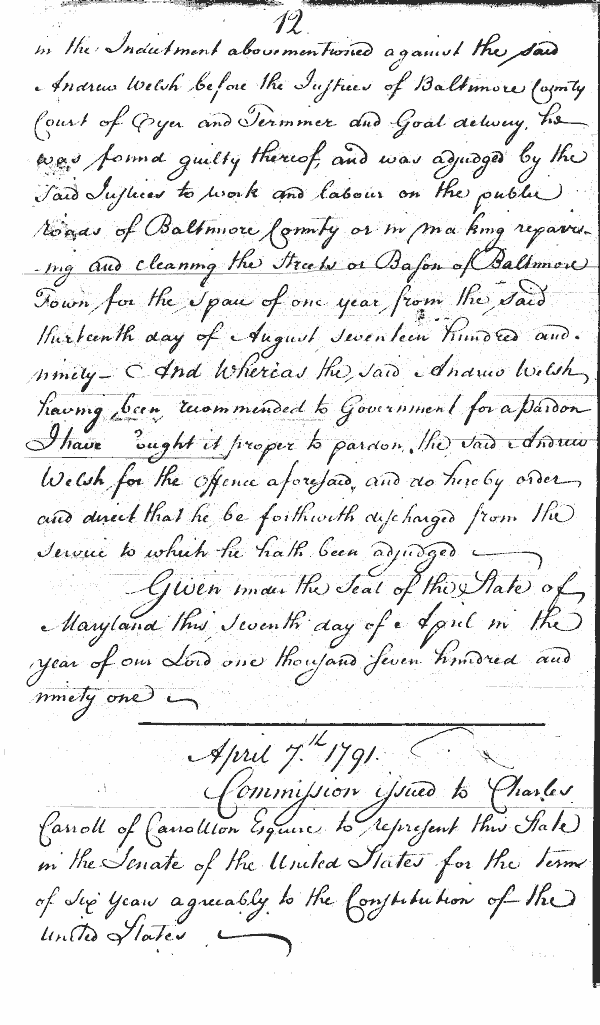 12
in the Indictment abovementioned against the said
Andrew Welsh before the Justices of Baltimore County
Court of Oyer and Terminer and Goal delivery, he
was found guilty thereof, and was adjudged by the
said Justices to work and labour on the public
roads of Baltimore County or in making repairi-
-ng and cleaning the Streets or Bason of Baltimore
Town, for the space of one year from the said
thirteenth day of August seventeen hundred and
ninety— And Whereas the said Andrew Welsh
having been recommended to Government for a pardon
I have ought it proper to pardon, the said Andrew
Welsh for the offence aforesaid, and do hereby order
and direct that he be forthwith discharged from the
service to which he hath been adjudged
Given under the Seal of the State of
Maryland this seventh day of April in the
year of our Lord one thousand seven hundred and
ninety one
April 7.th 1791.
Commission issued to Charles
Carroll of Carrollton Esquire to represent this State
in the Senate of the United States for the term
of six years agreeably to the Constitution of the
United States